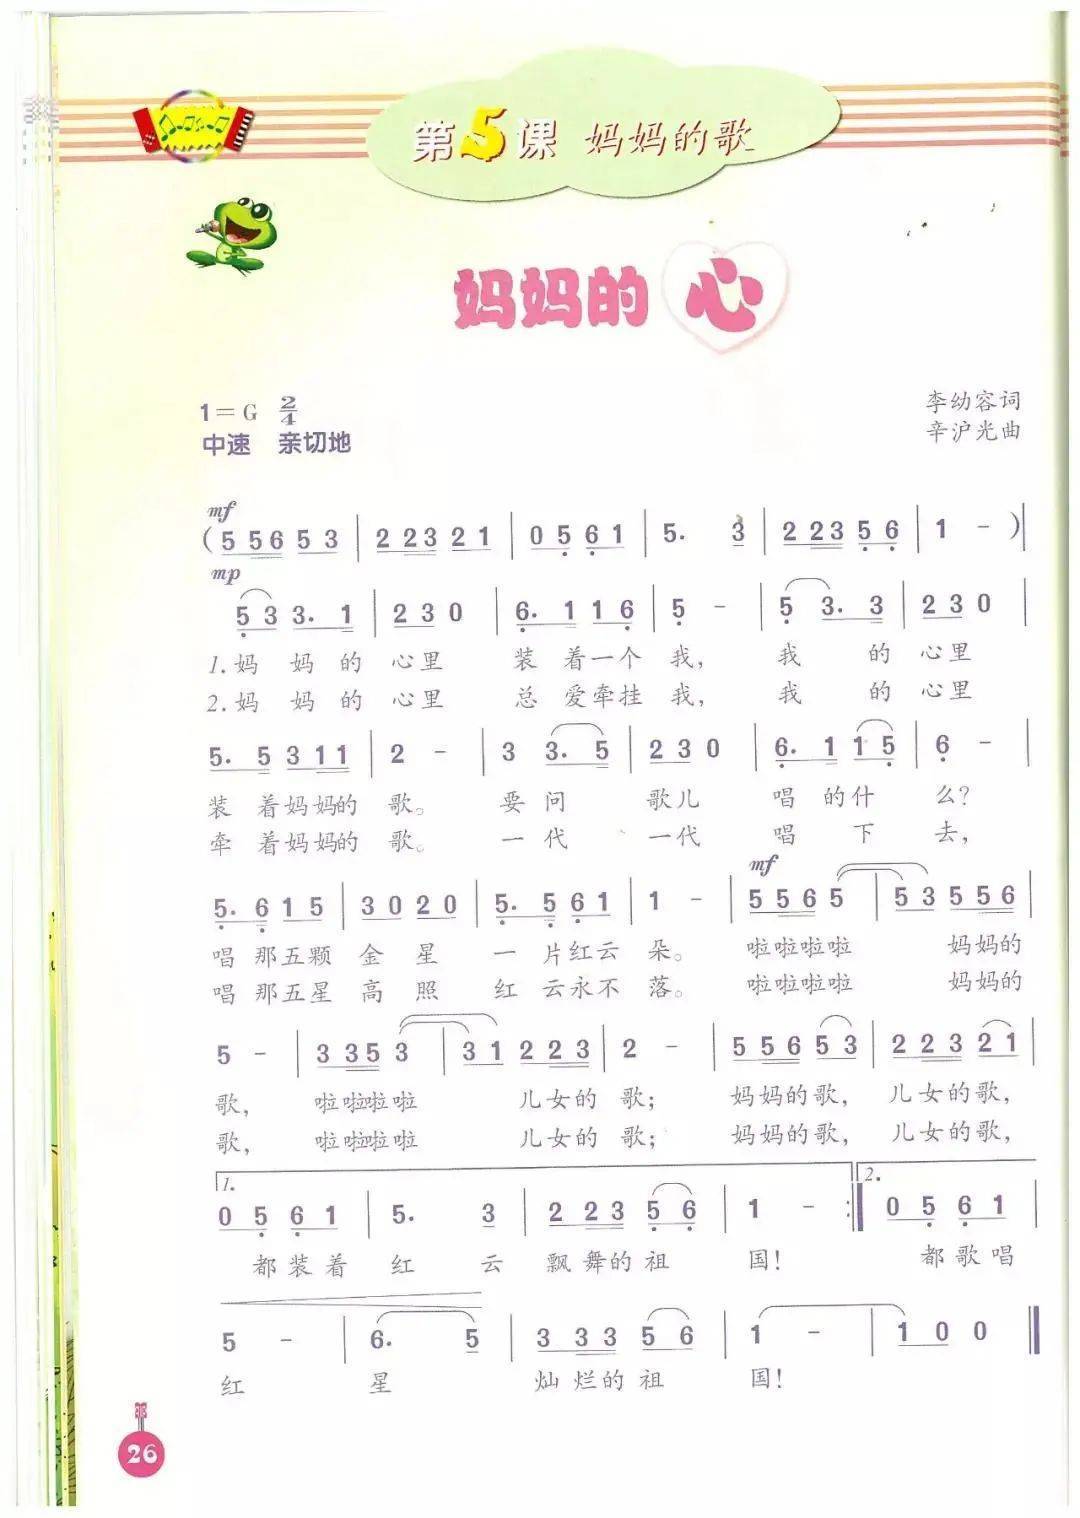 第5课 妈妈的歌
妈妈的心
1=G 2/4
李幼容词
中速 亲切地
辛沪光曲
mf
(5 5 6 5 3 | 2 2 3 2 1 | 0 5 6 1 | 5. 3 | 2 2 3 5 6 | 1 - )|
mp
5 3 3. 1 | 2 3 0 | 6. 1 1 6 | 5 - | 5 3. 3 | 2 3 0 |
1.妈 妈 的 心里 装 着一个 我, 我 的 心里
2.妈 妈 的 心里 总 爱牵挂 我, 我 的 心里
5. 5 3 1 1 | 2 - | 3 3. 5 | 2 3 0 | 6. 1 1 5 | 6 - |
装 着妈妈的 歌。 要问 歌儿 唱 的什 么?
牵 着妈妈的 歌。 一代 一代 唱 下 去,
mf
5. 6 1 5 | 3 0 2 0 | 5. 5 6 1 | 1 - | 5 5 6 5 | 5 3 5 5 6 |
唱 那五颗 金 星 一 片红云 朵。 啦啦啦啦 妈妈的
唱 那五星 高 照 红 云永不 落。 啦啦啦啦 妈妈的
5 - | 3 3 5 3 | 3 1 2 2 3 | 2 - | 5 5 6 5 3 | 2 2 3 2 1 |
歌, 啦啦啦啦 儿女的 歌; 妈妈的歌, 儿女的歌,
歌, 啦啦啦啦 儿女的 歌; 妈妈的歌, 儿女的歌,
1. 2.
0 5 6 1 | 5. 3 | 2 2 3 5 6 | 1 - :|| 0 5 6 1 |
都装着 红 云 飘舞的祖 国! 都歌唱
5 - | 6. 5 | 3 3 3 5 6 | 1 - | 1 0 0 ||
红 星 灿烂的祖 国!
26